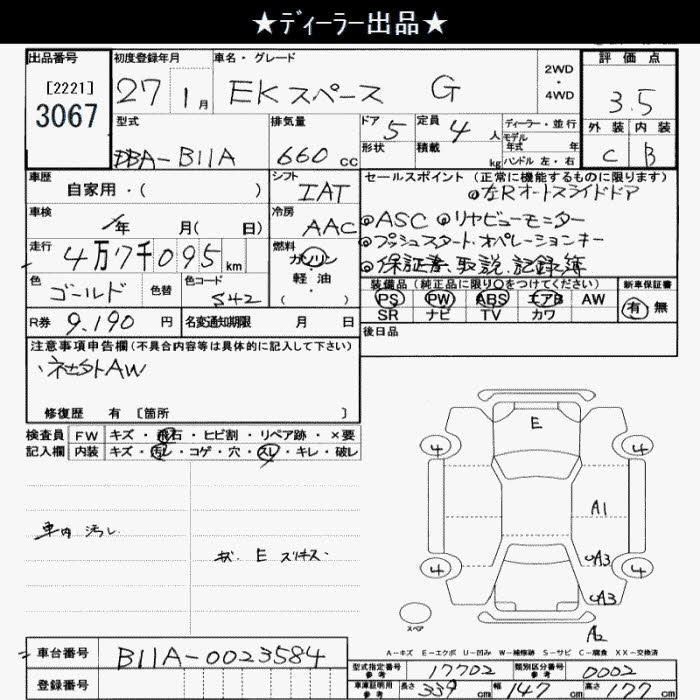 ★ディーラー出品★
出品番号 初度登録年月 車名・グレード 2WD・4WD 評価点
[2221] 3067 27 1月 EKスペース G 3.5
型式 排気量 ドア 5 定員 4人 ディーラー・並行 外装 内装
モデル年式 年
DBA-B11A 660cc 形状 積載 kg ハンドル 左・右 C B
車歴 シフト セールスポイント (正常に機能するものに限ります)
自家用・( ) IAT ◎左Rオートスライドドア
車検 年 月( 日) 冷房 AAC ◎ASC ◎リヤビューモニター
走行 4万7千095km 燃料 ガソリン ◎プッシュスタート・オペレーションキー
軽油・( ) ◎保証書、取説、記録簿
色 ゴールド 色替 色コード S42 装備品(純正品に限り○をつけてください) 新車保証書
PS PW ABS エアB AW 有 無
SR ナビ TV カワ
R券 9,190円 名変通知期限 月 日 後日品
注意事項申告欄(不具合内容等は具体的に記入して下さい)
・社外AW
修復歴 有 [箇所 ]
検査員 FW キズ・飛石・ヒビ割・リペア跡・×要
記入欄 内装 キズ・汚レ・コゲ・穴・スレ・キレ・破レ
E
4 4
A1
車内 汚レ
キズ E スリキズ・
A3
4 4
A3
スペア
A2
A-キズ E-エクボ U-凹み W-補修跡 S-サビ C-腐食 XX-交換済
車台番号 B11A-0023584
型式指定番号 参考 17702 類別区分番号 参考 0002
登録番号
車庫証明用 参考 長さ 339cm 幅 147cm 高さ 177cm